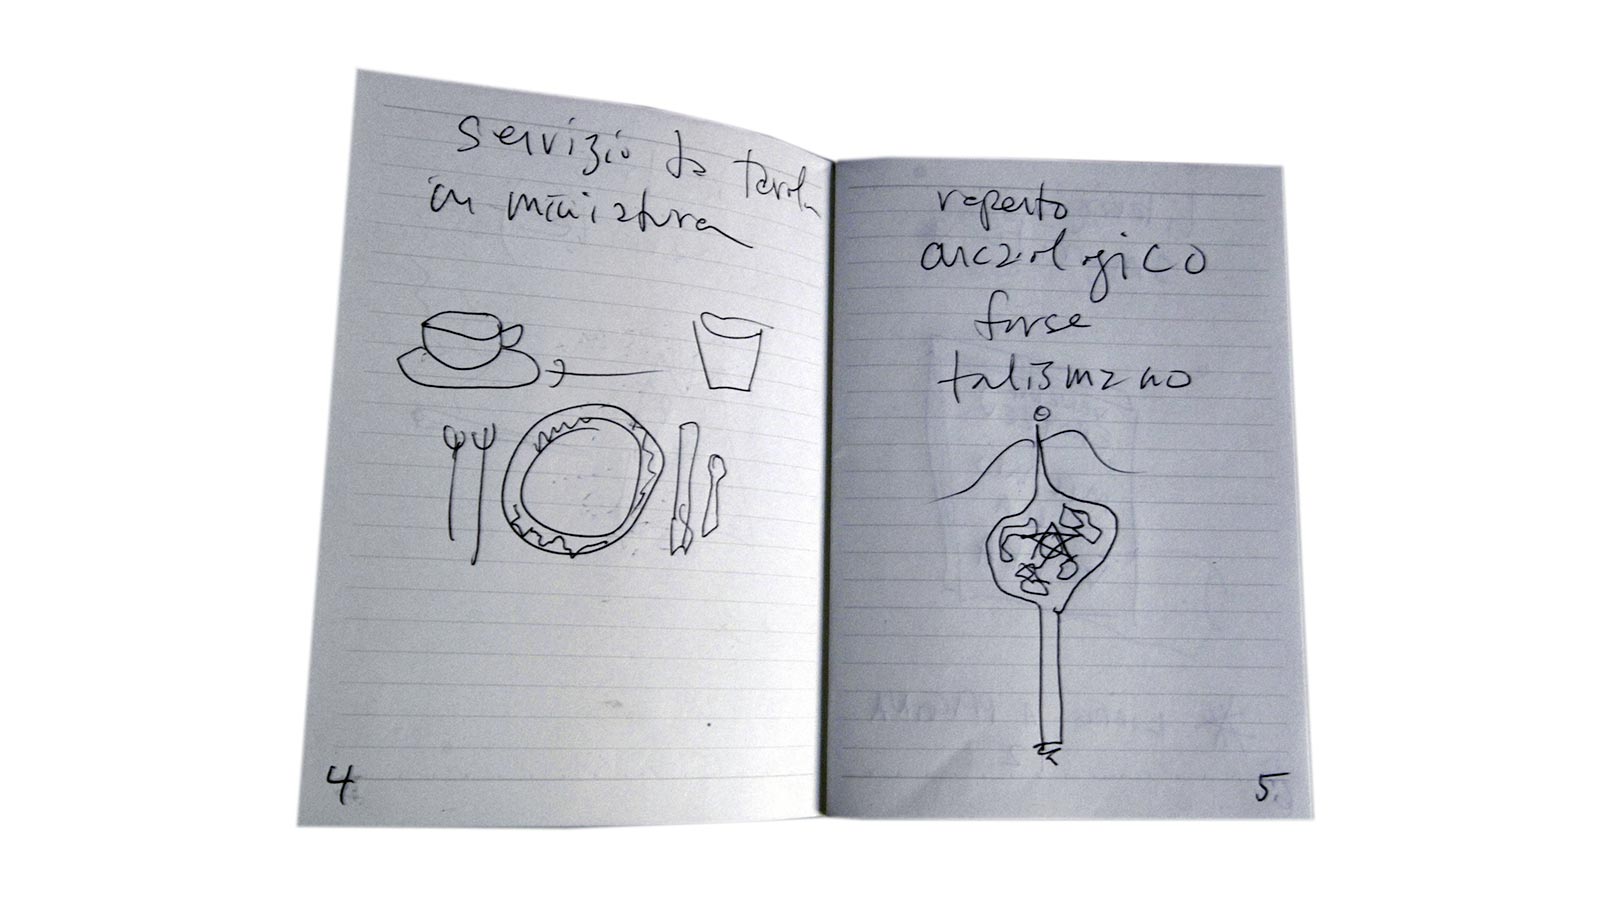 servizio da tavola
in miniatura
4
reperto
archeologico
forse
talismano
5